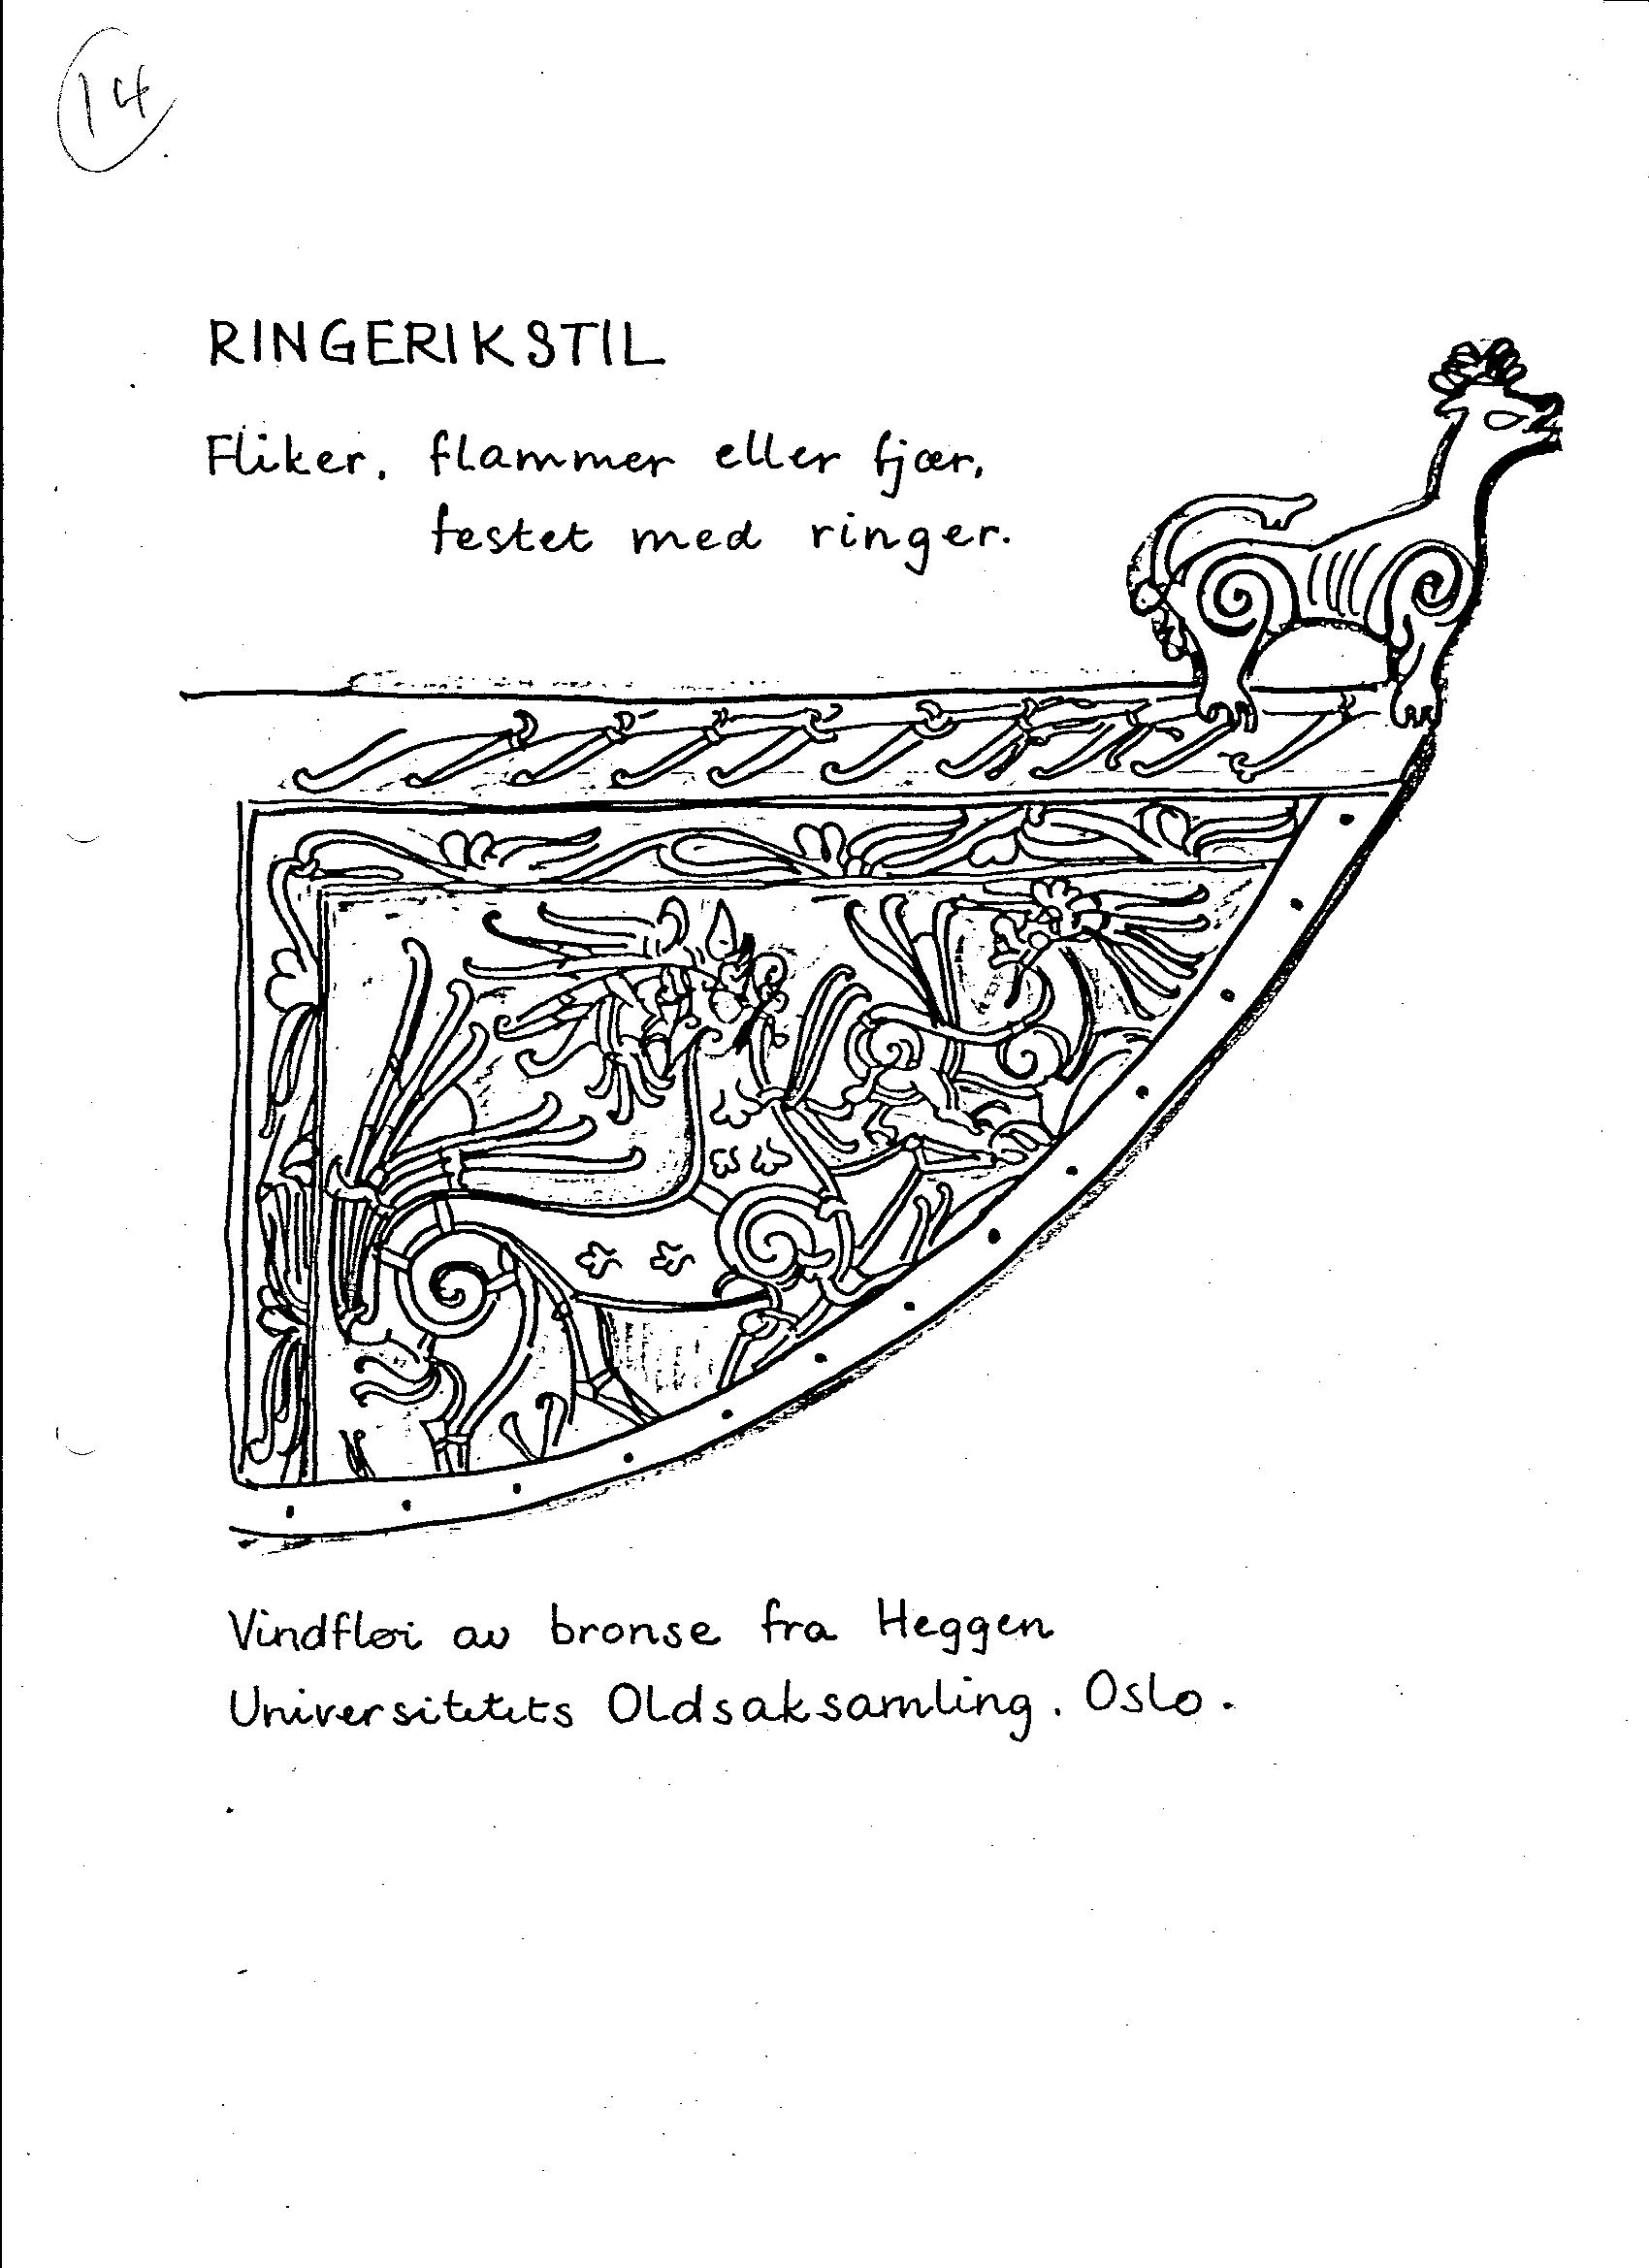 14
RINGERIKSTIL
Fliker, flammer eller fjær,
festet med ringer.
Vindfløi av bronse fra Heggen
Universitetets Oldsaksamling. Oslo.